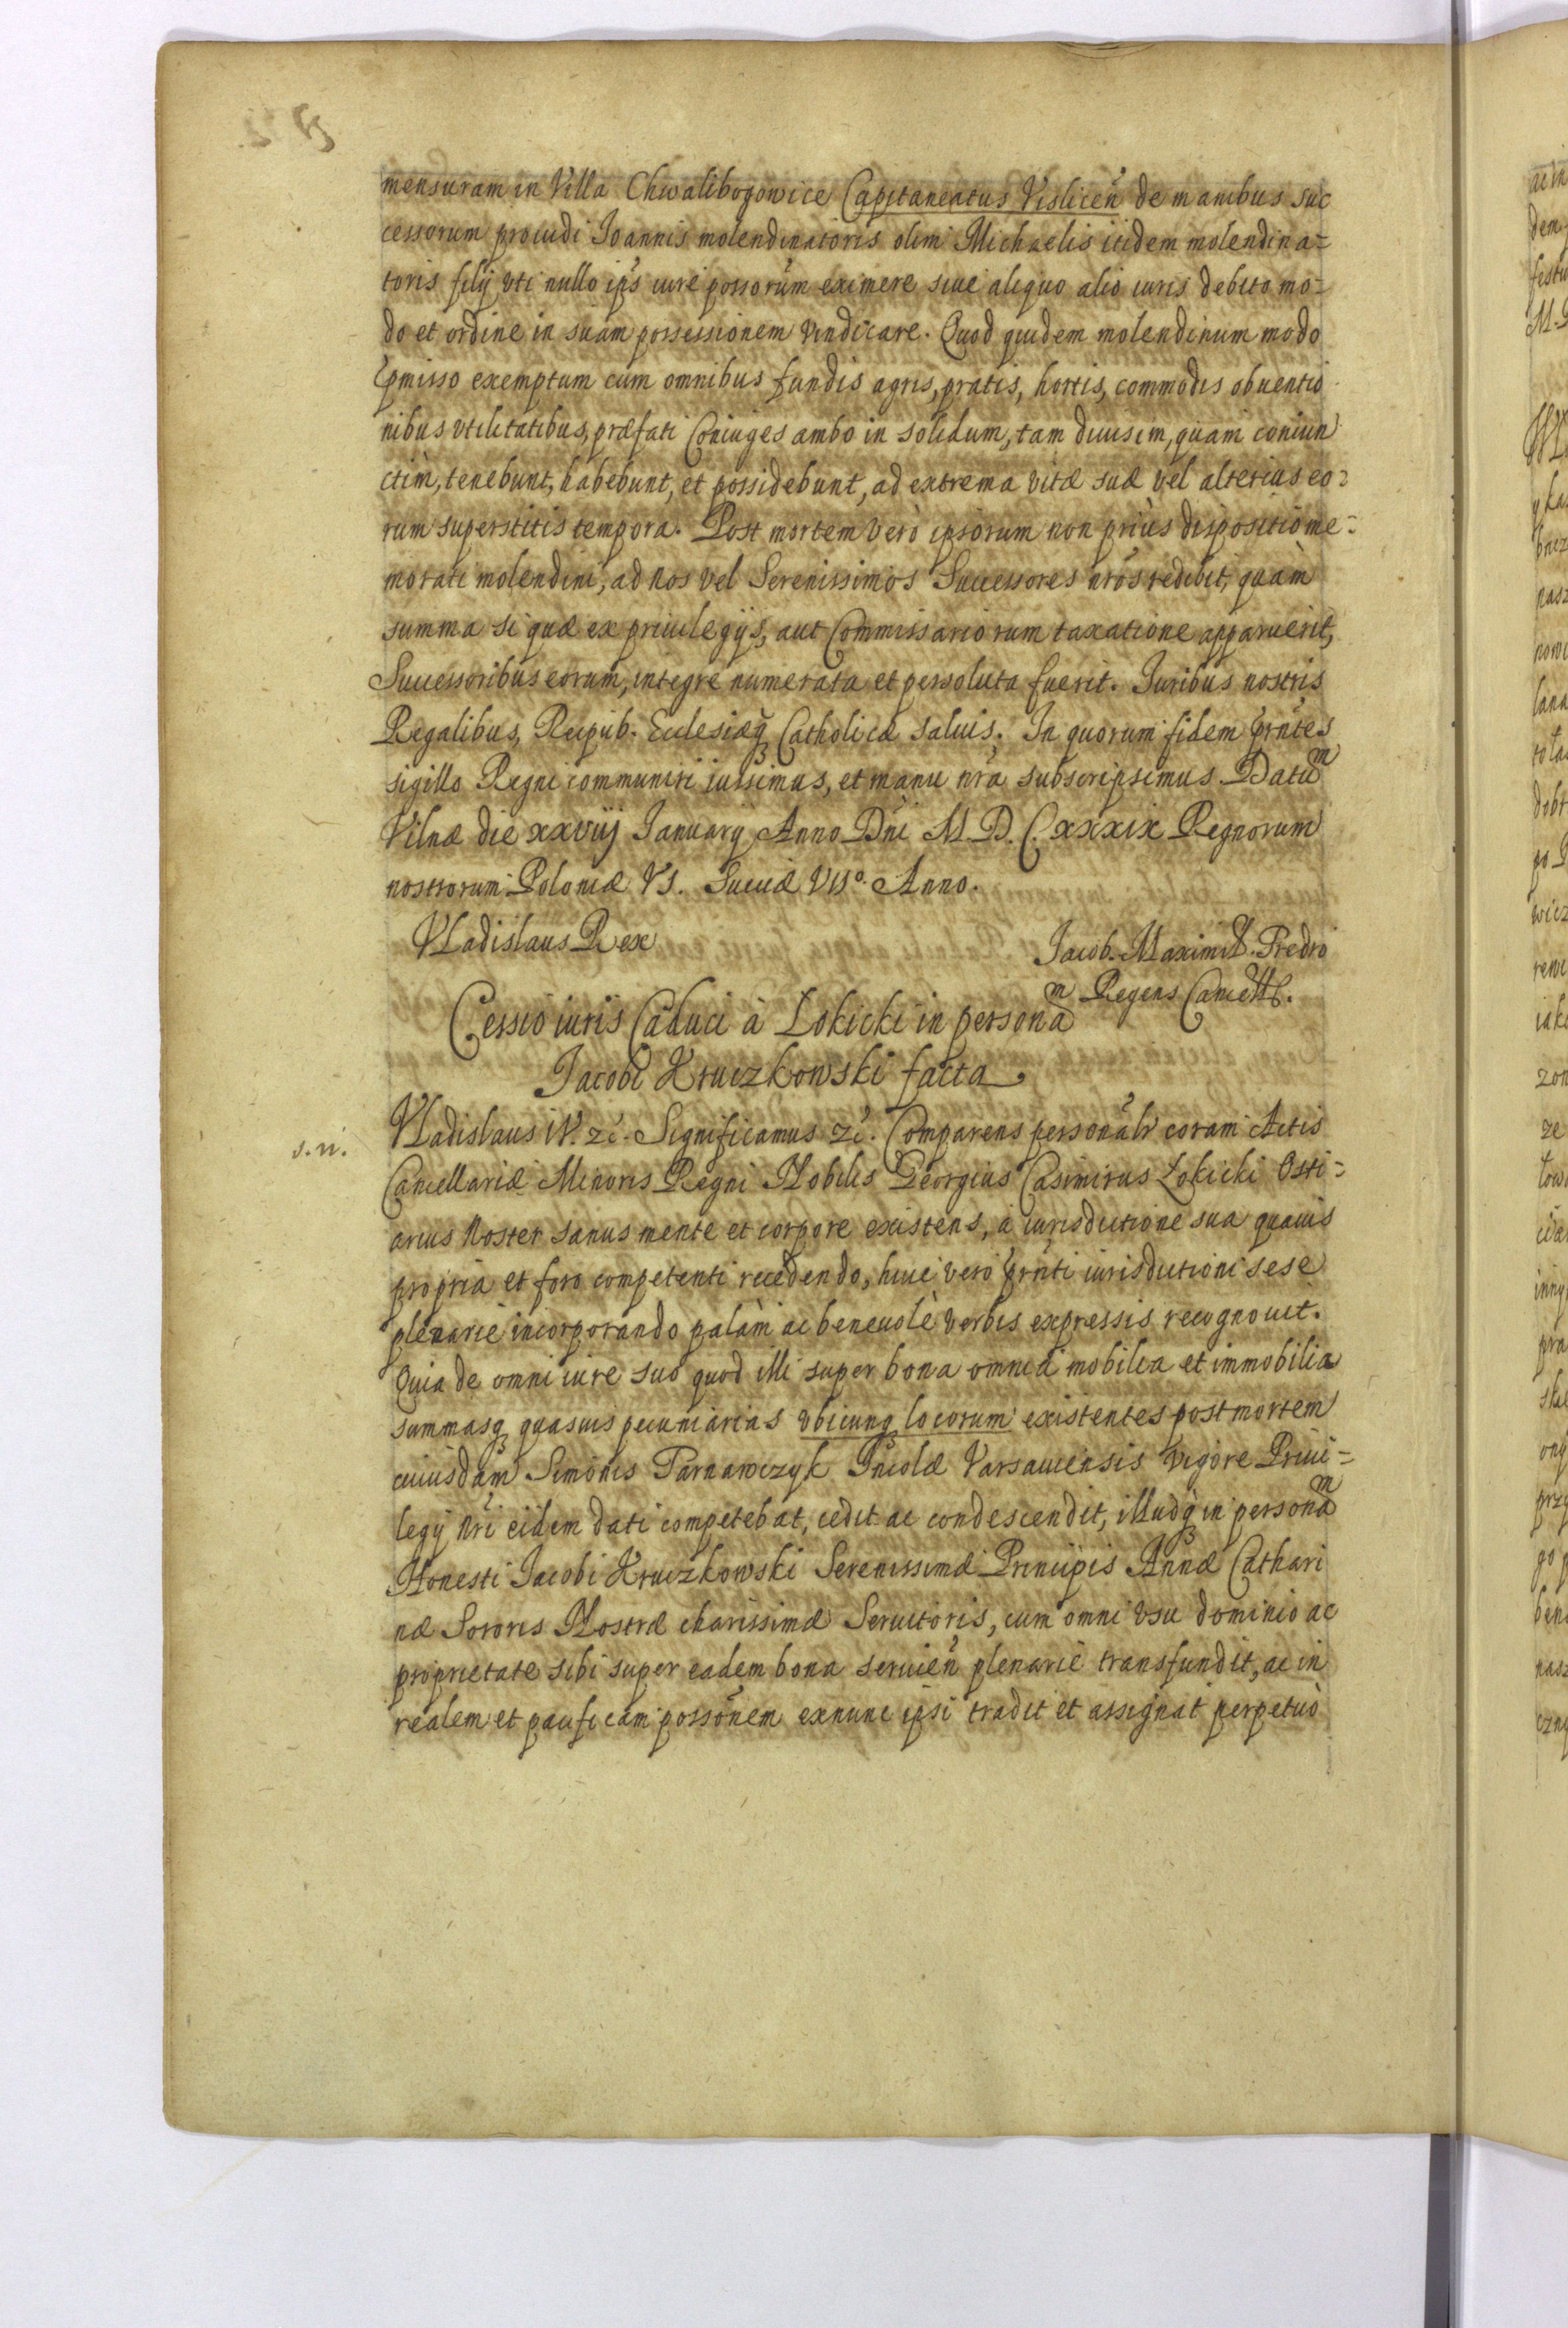 mensuram in Villa Chwalibogowice Capitaneatus Visliceñ de manibus suc
cessorum prouidi Ioannis molendinatoris olim Michaelis itidem molendina=
toris filij vti nullo ip̃s iure possorũm eximere siue aliquo alio iuris debito mo=
do et ordine in suam possessionem vindicare. Quod quidem molendinum modo
p̃misso exemptum cum omnibus fundis agris, pratis, hortis, commodis obuentio
nibus vtilitatibus, præfati Coniuges ambo in solidum, tam diuisim, quam coniun
ctim, tenebunt, habebunt, et possidebunt, ad extrema vitæ suæ vel alterius eo=
rum superstitis tempora. Post mortem verò ipsorum non priùs dispositio me=
morati molendini, ad Nos vel Serenissimos Successores nr̃os redibit, quàm
summa si quæ ex priuilegijs, aut Commissariorum taxatione apparuerit,
Successoribus eorum, integre numerata et persoluta fuerit. Iuribus nostris
Regalibus, Reipub. Ecclesiæq̃ Catholicæ saluis. In quorum fidem p̃rñtes
sigillo Regni communiri iussimus, et manu nr̃a subscripsimus. Datum
Vilnæ die xxviij Ianuarij Anno Dñi M. D. C. xxxix Regnorum
nostrorum Poloniæ VI. Sueciæ VIIº. Anno.
Vladislaus Rex
Jacob. Maximil. Fredro
Regens Cancell.
Cessio iuris Caduci à Łokicki in personam
Jacobi Kruczkowski facta
s. n.
Vladislaus IV. zc̃. Significamus zc̃. Comparens personalr̃ coram Actis
Cancellariæ Minoris Regni Nobilis Georgius Casimirus Łokicki Osti=
arius Noster sanus mente et corpore existens, à iurisdictione sua quauis
propria et foro competenti recedendo, huic verò p̃rñti iurisdictioni sese
plenarie incorporando palàm ac beneuolè verbis expressis recognouit.
Quia de omni iure suo quod illi super bona omnia mobilia et immobilia
summasq̃ quasuis pecuniarias vbicunq̃ locorum existentes post mortem
cuiusdam Simonis Parnawczyk Incolæ Varsauiensis vigore Priui=
legij nr̃i eidem dati competebat, cedit ac condescendit, illudq̃ in personam
Honesti Iacobi Kruczkowski Serenissimæ Principis Annæ Cathari
næ Sororis Nostræ charissimæ Seruitoris, cum omni vsu dominio ac
proprietate sibi super eadem bona seruieñ plenarie transfundit, ac in
realem et pacificam possõnem exnunc ipsi tradit et assignat perpetuò